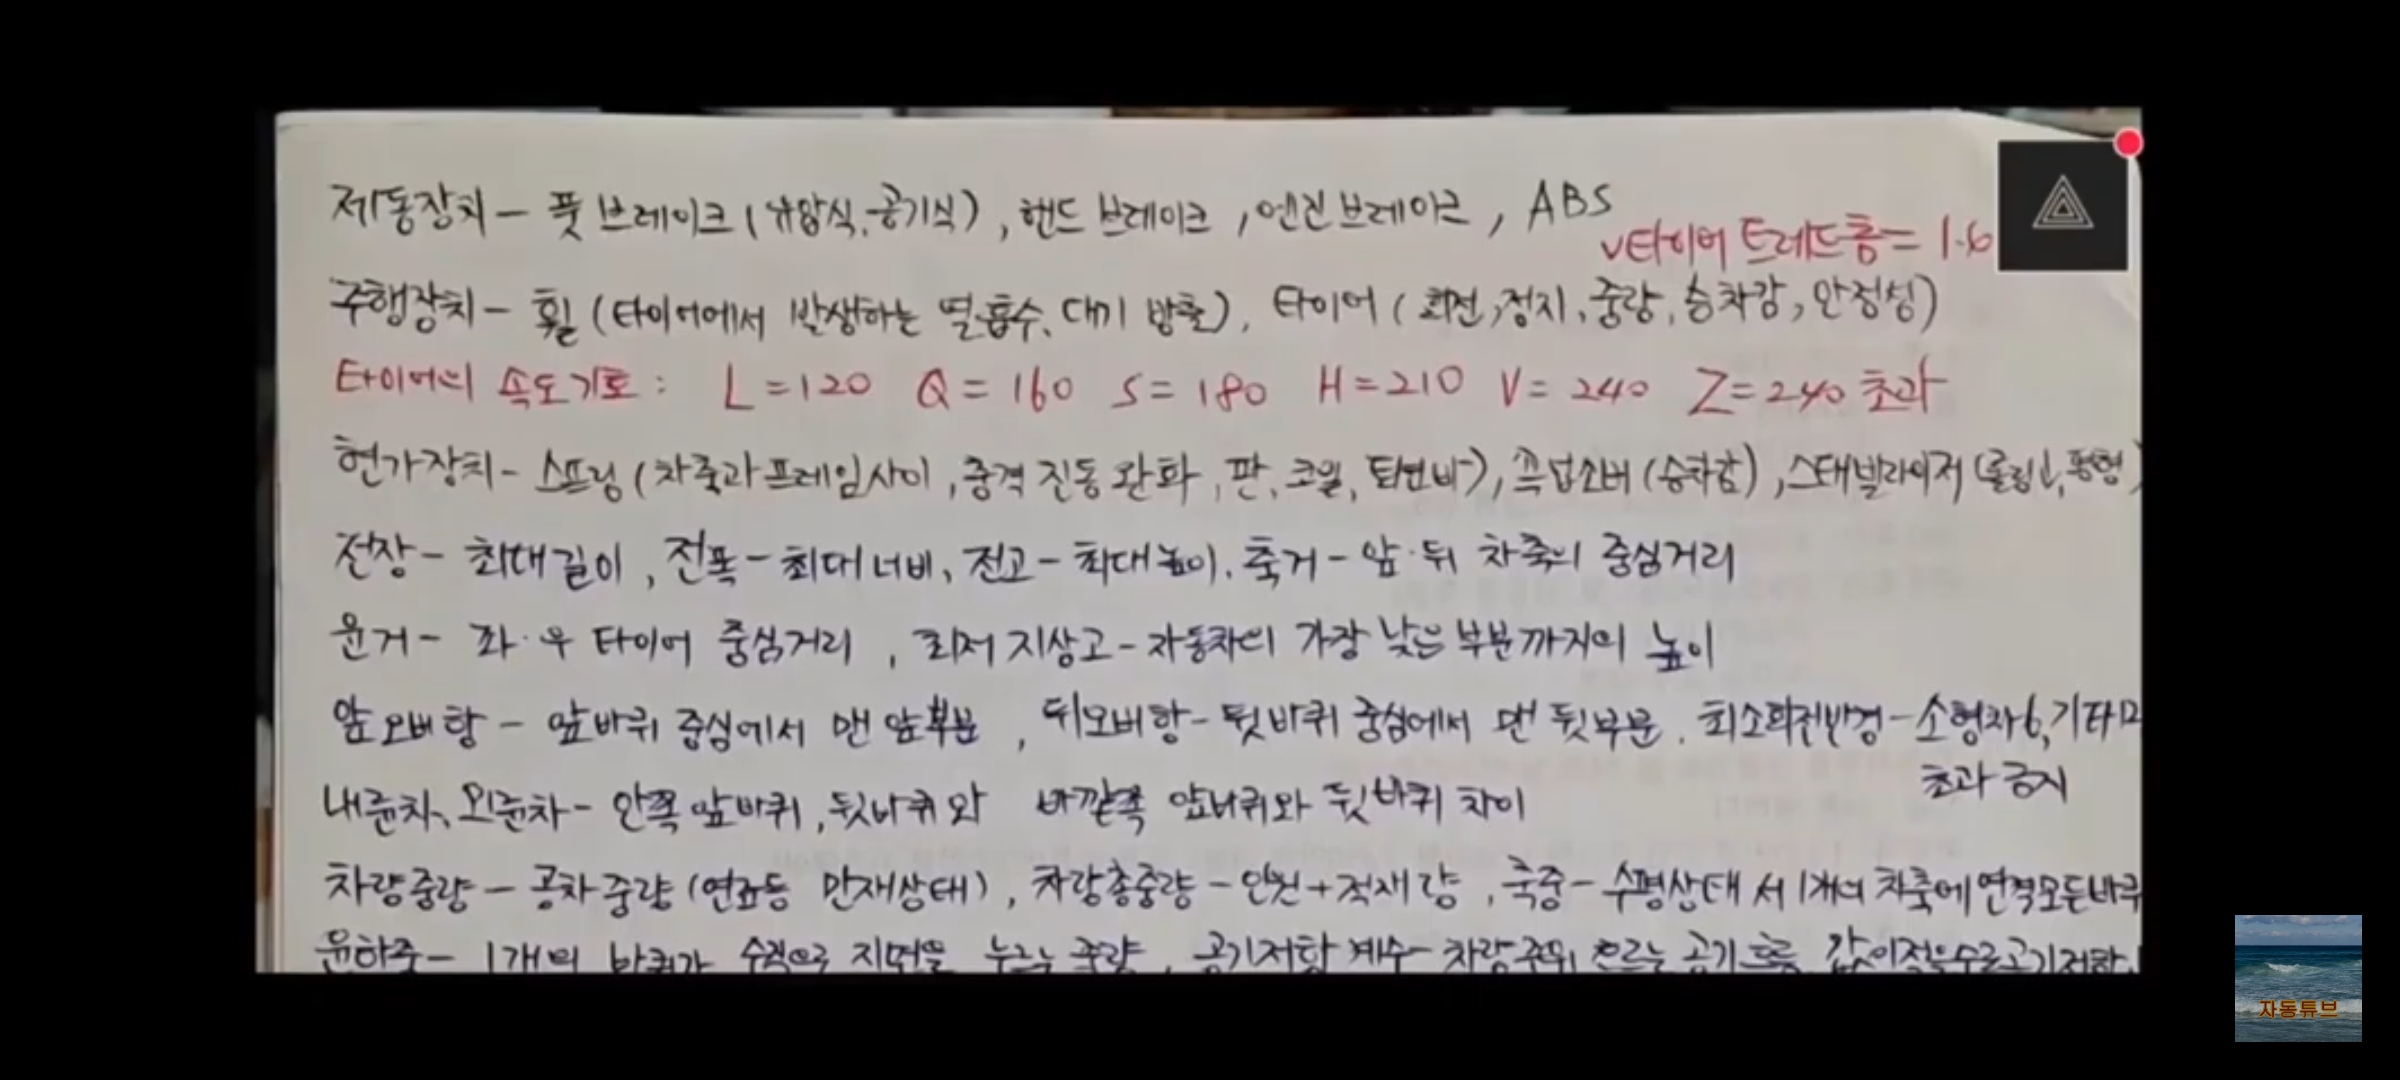 제동장치 - 풋 브레이크 (유압식, 공기식), 핸드 브레이크, 엔진브레이크, ABS
v타이어 트레드홈 = 1.6
주행장치 - 휠 (타이어에서 발생하는 열흡수, 대기 방출), 타이어 (회전, 정지, 중량, 승차감, 안정성)
타이어의 속도기호: L=120 Q=160 S=180 H=210 V=240 Z=240 초과
현가장치 - 스프링 (차축과 프레임사이, 충격 진동 완화, 판, 코일, 토션바), 쇽업소버 (승차감), 스태빌라이저
전장 - 최대길이, 전폭 - 최대너비, 전고 - 최대높이. 축거 - 앞·뒤 차축의 중심거리
윤거 - 좌·우 타이어 중심거리, 최저 지상고 - 자동차의 가장 낮은부분까지의 높이
앞오버항 - 앞바퀴 중심에서 맨 앞부분, 뒤오버항 - 뒷바퀴 중심에서 맨 뒷부분. 최소회전반경 - 소형차6, 기타12
초과 금지
내륜차, 외륜차 - 안쪽 앞바퀴, 뒷바퀴와 바깥쪽 앞바퀴와 뒷바퀴 차이
차량중량 - 공차중량 (연료등 만재상태), 차량총중량 - 인원+적재량, 축중 - 수평상태서 1개의 차축에 연결모든바퀴
윤하중 - 1개의 바퀴가 수직으로 지면을 누르는 중량, 공기저항 계수 - 차량주위 흐르는 공기흐름 값이적을수록공기저항
자동튜브